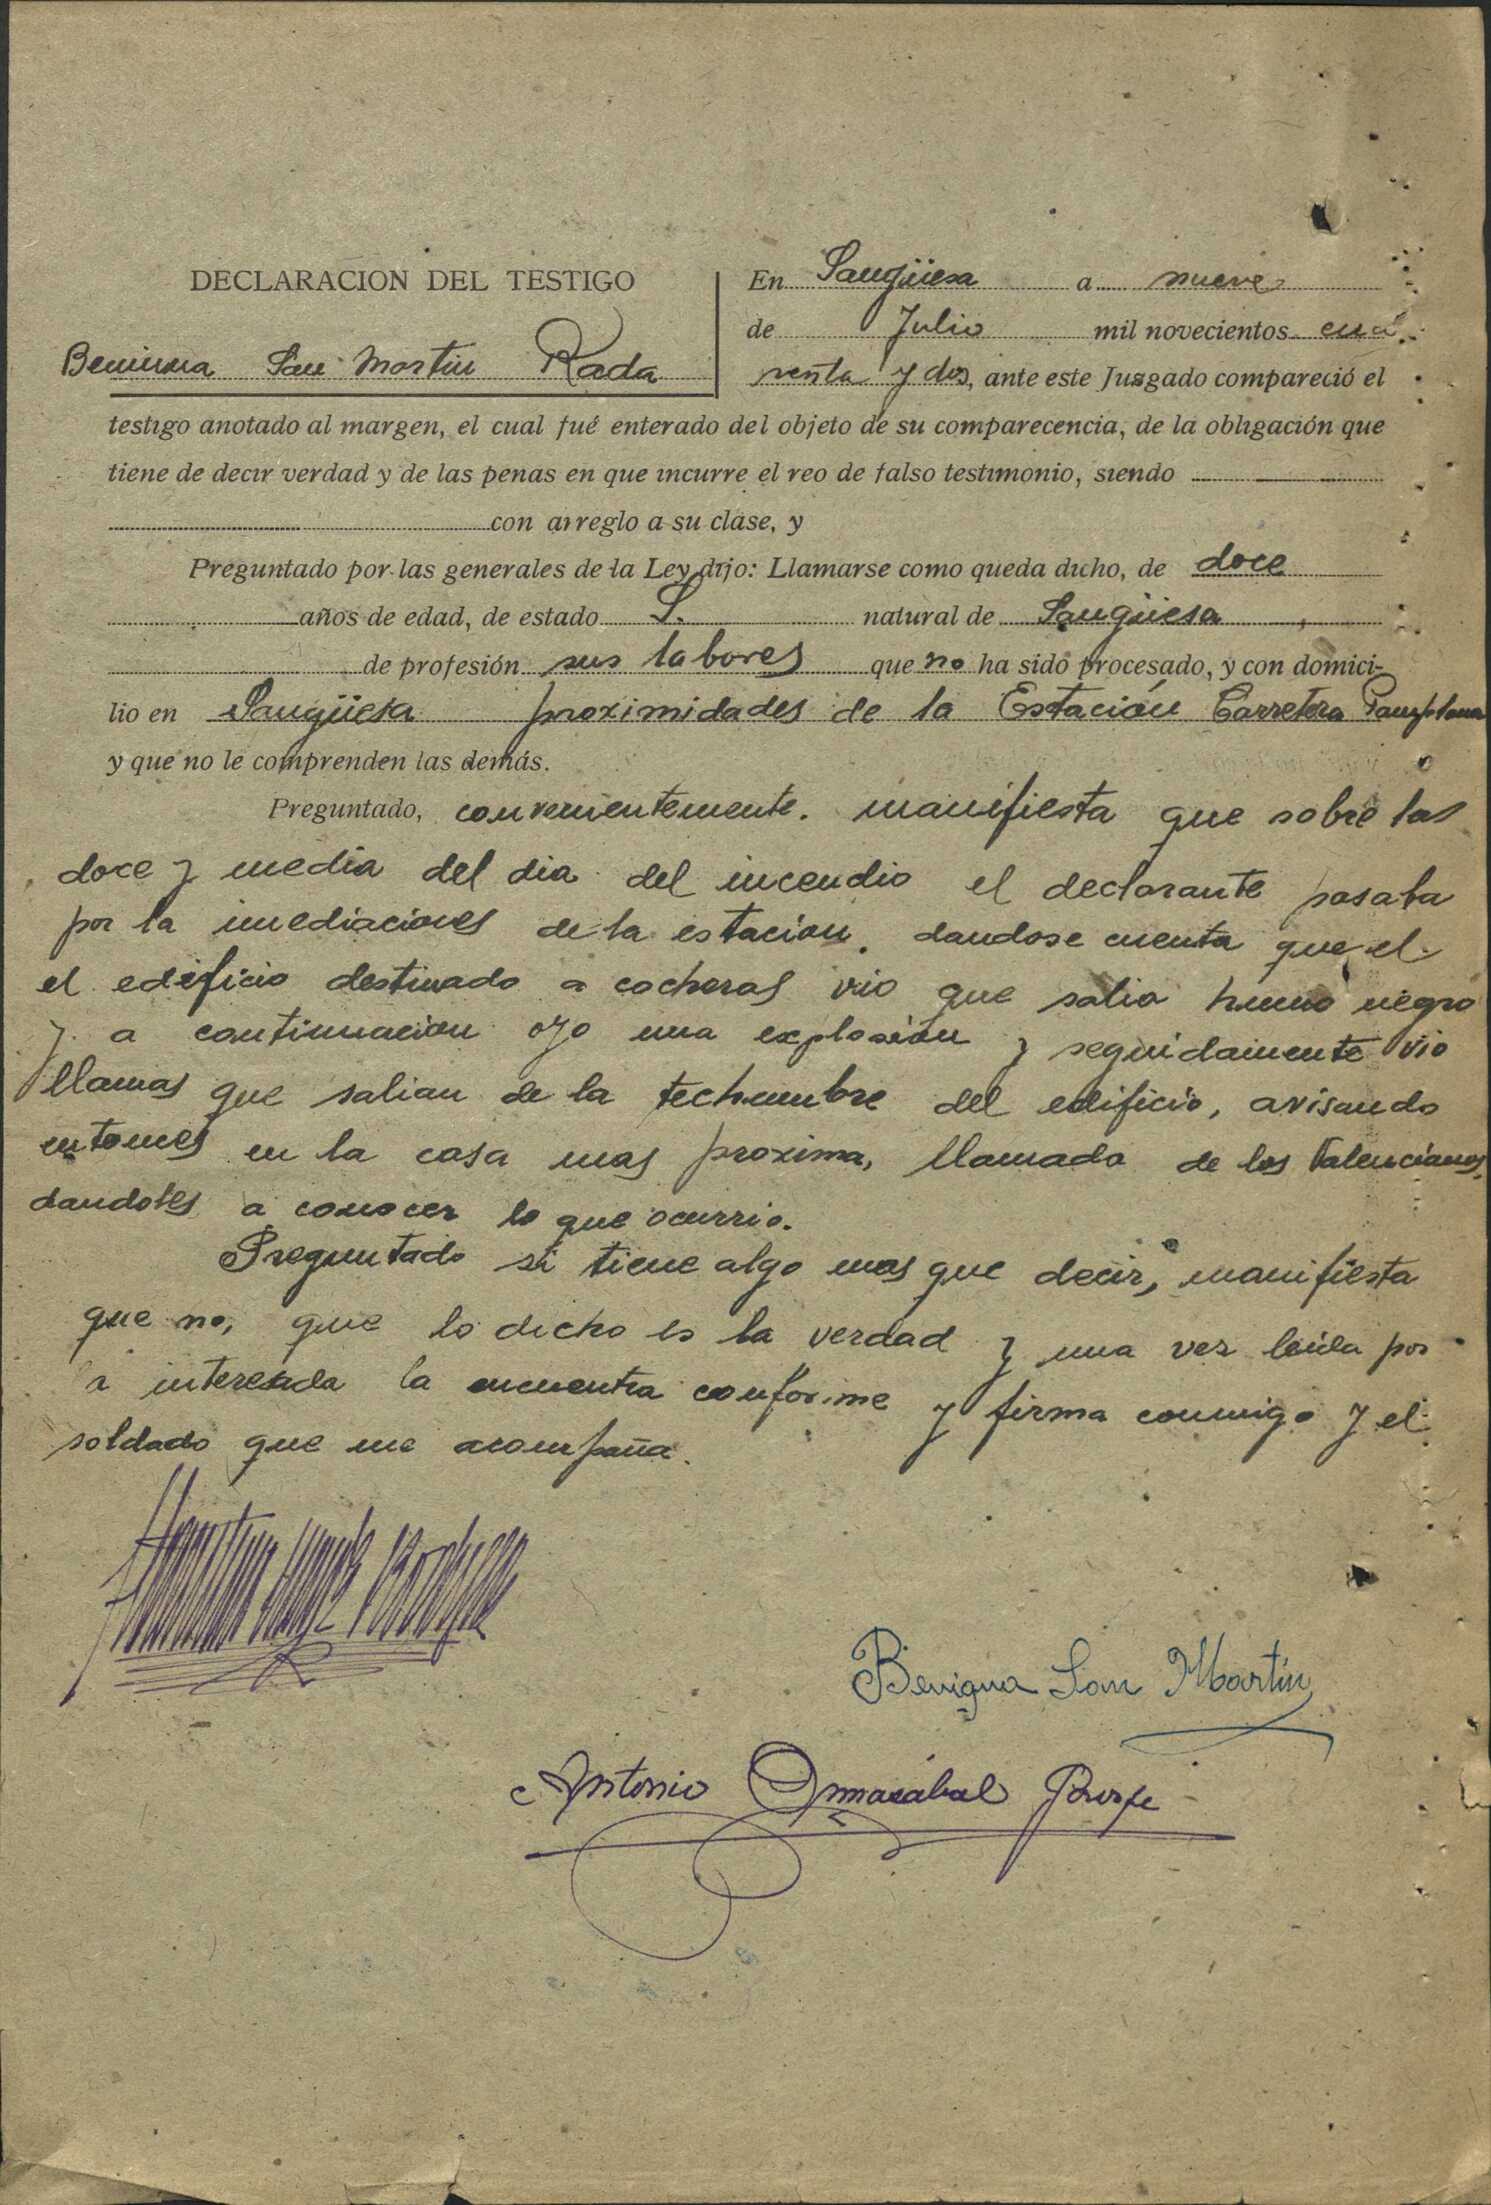 DECLARACION DEL TESTIGO
Benigna San Martin Rada
En Sangüesa a nueve
de Julio mil novecientos cua
renta y dos, ante este Juzgado compareció el
testigo anotado al margen, el cual fué enterado del objeto de su comparecencia, de la obligación que
tiene de decir verdad y de las penas en que incurre el reo de falso testimonio, siendo
con arreglo a su clase, y
Preguntado por las generales de la Ley dijo: Llamarse como queda dicho, de doce
años de edad, de estado S. natural de Sangüesa,
de profesión sus labores que no ha sido procesado, y con domici-
lio en Sangüesa proximidades de la Estación Carretera Pamplona
y que no le comprenden las demás.
Preguntado, convenientemente. manifiesta que sobre las
doce y media del dia del incendio el declarante pasaba
por la imediaciones de la estación. dandose cuenta que el
el edificio destinado a cocheras vio que salia humo negro
y a continuacion oyo una explosión y seguidamente vio
llamas que salian de la techumbre del edificio, avisando
entonces en la casa mas proxima, llamada de los Valencianos,
dandoles a conocer lo que ocurrio.
Preguntado si tiene algo mas que decir, manifiesta
que no, que lo dicho es la verdad y una vez leida por
la interesada la encuentra conforme y firma conmigo y el
soldado que me acompaña.
Benigna San Martín
Antonio